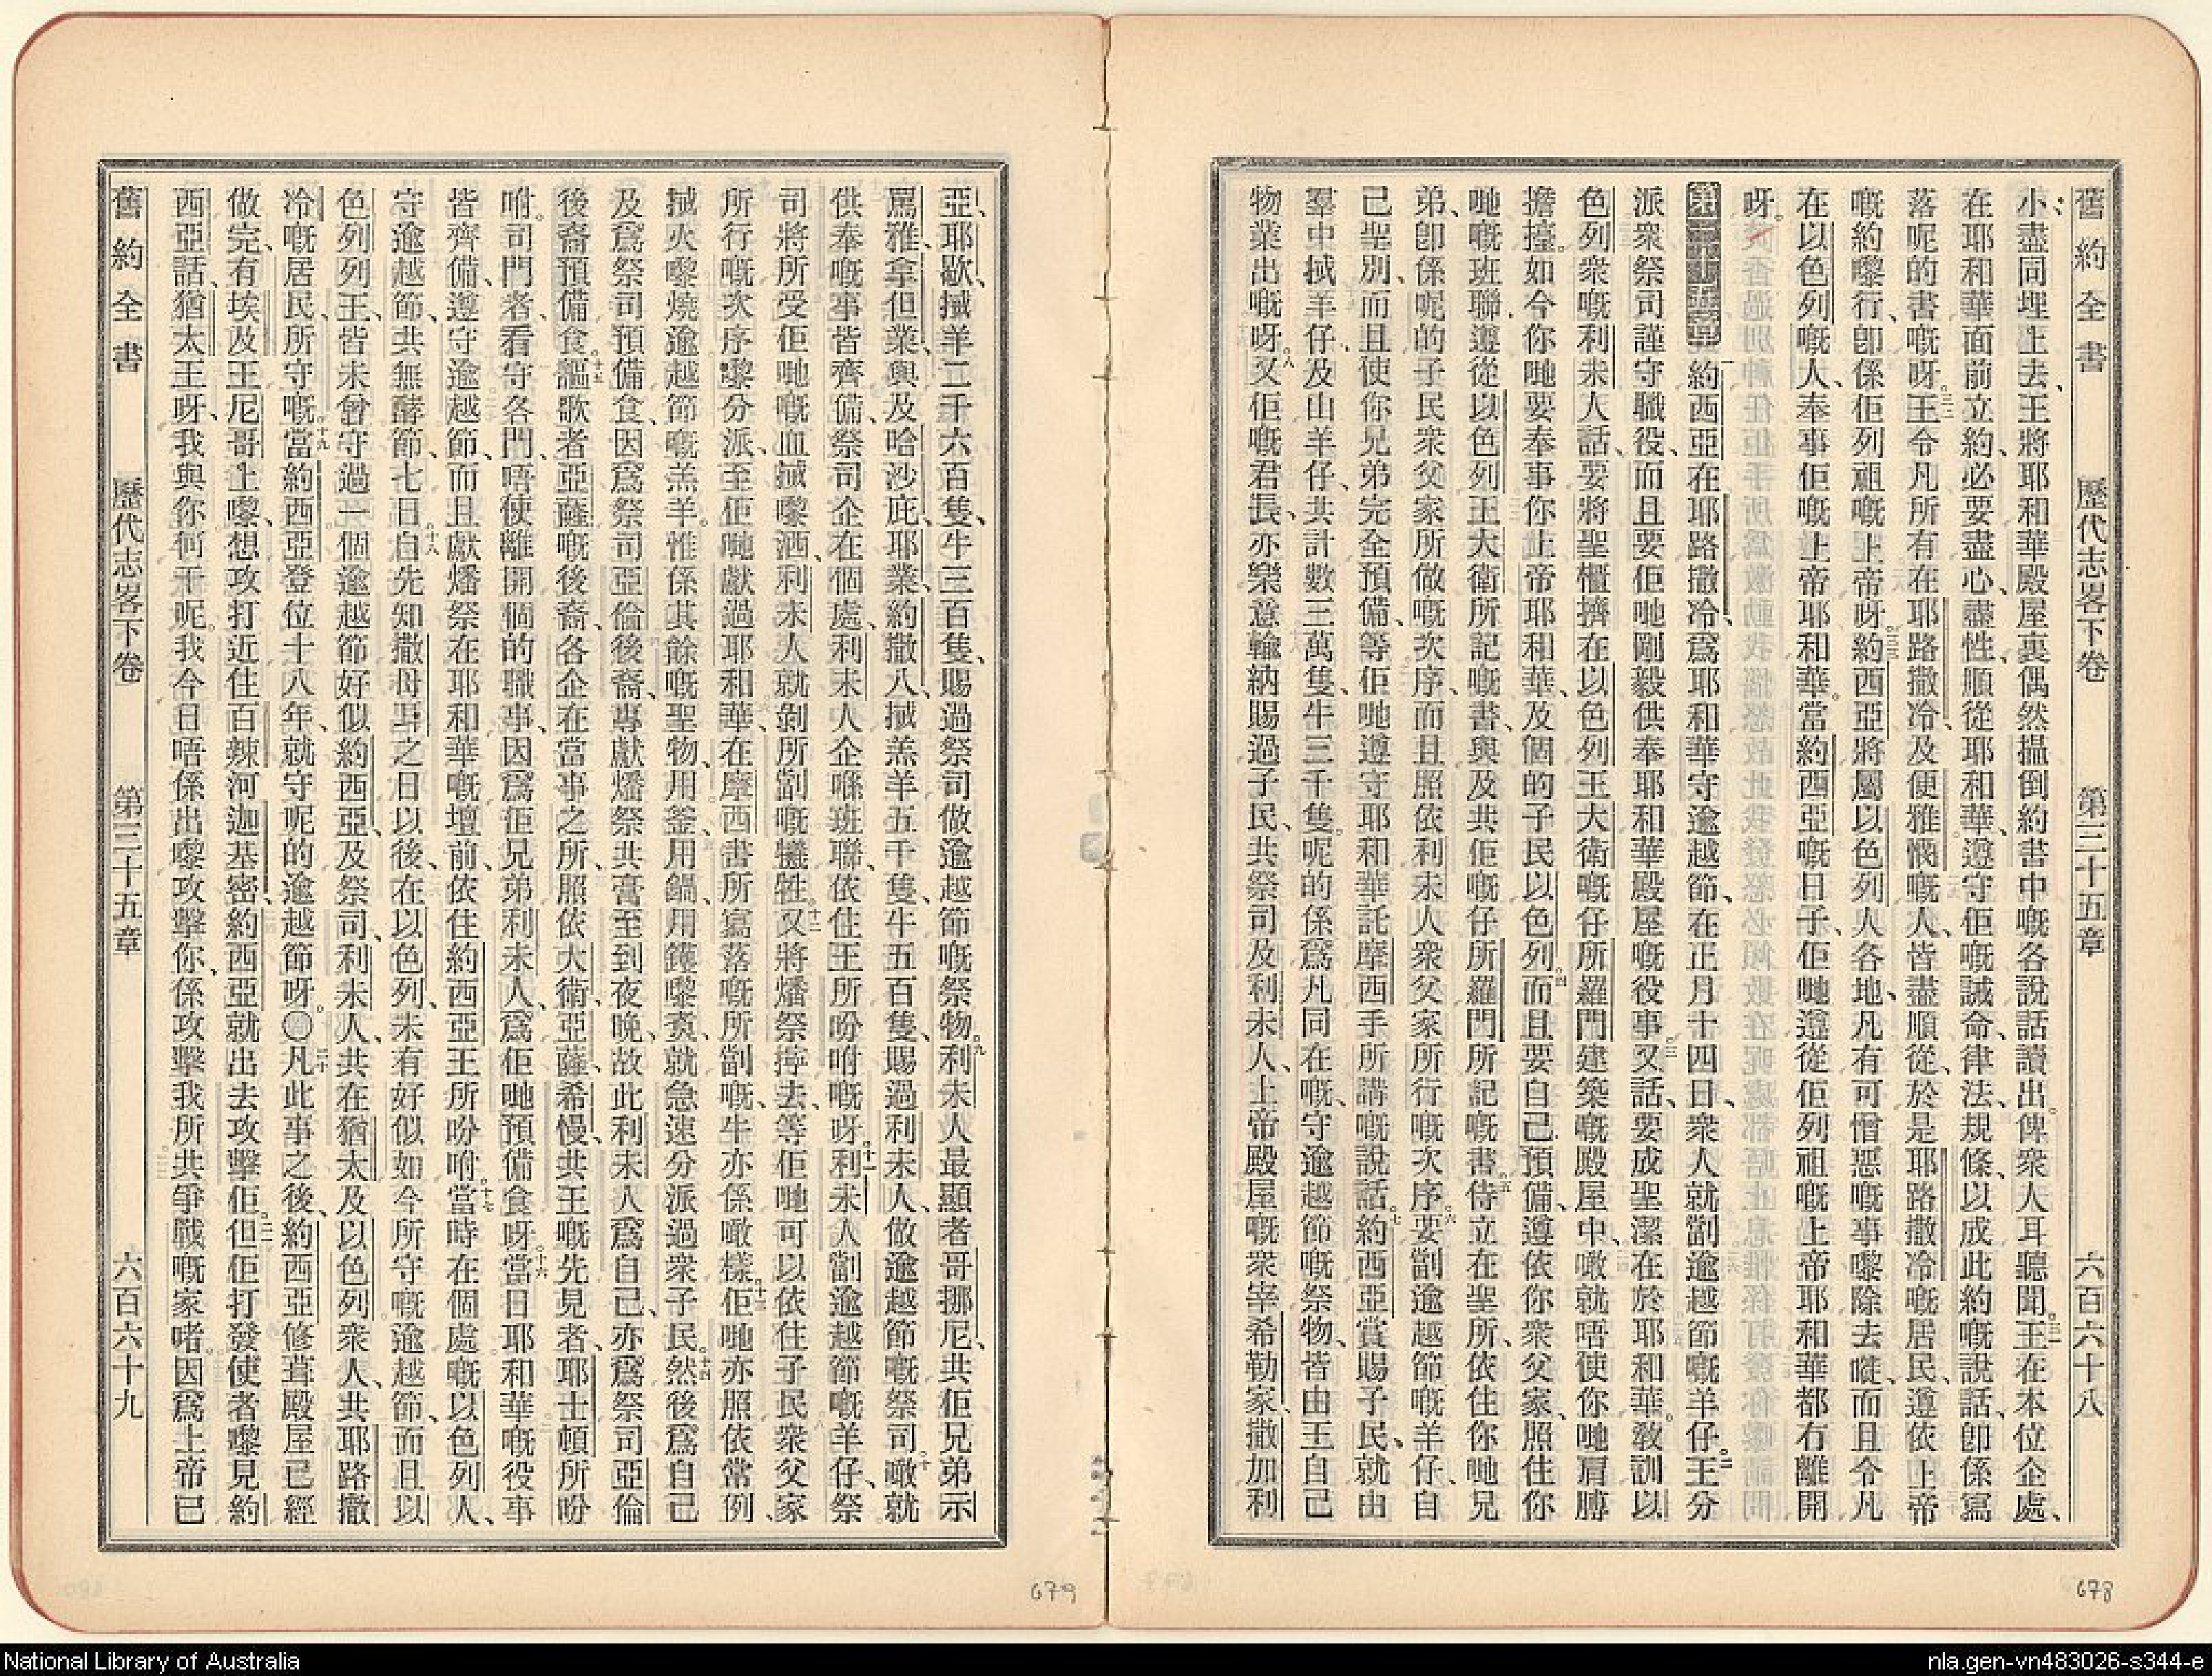 舊約全書　歷代志畧下卷　第三十五章　六百六十八
小、盡同埋上去、王將耶和華殿屋裏偶然搵倒約書中嘅各說話讀出。俾衆人耳聽聞。三一王在本位企處、
在耶和華面前立約、必要盡心、盡性、順從耶和華、遵守佢嘅誡命、律法、規條、以成此約嘅說話、卽係寫
落呢的書嘅呀。三二王令凡所有在耶路撒冷、及便雅憫嘅人、皆盡順從、於是耶路撒冷嘅居民、遵依上帝
嘅約嚟行、卽係佢列祖嘅上帝呀。三三約西亞將屬以色列人各地、凡有可憎惡嘅事嚟除去嘥、而且令凡
在以色列嘅人、奉事佢嘅上帝耶和華。當約西亞嘅日子、佢哋遵從佢列祖嘅上帝耶和華都冇離開
呀。
第三十五章　一約西亞在耶路撒冷、爲耶和華守逾越節、在正月十四日、衆人就劏逾越節嘅羊仔。二王分
派衆祭司謹守職役、而且要佢哋剛毅供奉耶和華殿屋嘅役事。三又話、要成聖潔在於耶和華。敎訓以
色列衆嘅利未人話、要將聖櫃擠在以色列王大衛嘅仔所羅門建築嘅殿屋中、噉就唔使你哋肩膊
擔擡。如今你哋要奉事你上帝耶和華、及個的子民以色列。四而且要自己預備、遵依你衆父家、照住你
哋嘅班聯、遵從以色列王大衛所記嘅書、與及共佢嘅仔所羅門所記嘅書。五侍立在聖所、依住你哋兄
弟、卽係呢的子民衆父家所做嘅次序、而且照依利未人衆父家所行嘅次序。六要劏逾越節嘅羊仔、自
己聖別、而且使你兄弟完全預備、等佢哋遵守耶和華託摩西手所講嘅說話。七約西亞賞賜子民、就由
羣中㨴羊仔、及山羊仔、共計數三萬隻、牛三千隻。呢的係爲凡同在嘅、守逾越節嘅祭物、皆由王自己
物業出嘅呀。八又佢嘅君長、亦樂意輸納賜過子民、共祭司及利未人、上帝殿屋嘅衆宰希勒家、撒加利
678
亞、耶歇、㨴羊二千六百隻、牛三百隻、賜過祭司做逾越節嘅祭物。九利未人最顯者哥挪尼、共佢兄弟示
罵雅、拿但業、與及哈沙庇、耶業、約撒八、㨴羔羊五千隻、牛五百隻、賜過利未人、做逾越節嘅祭司。十噉就
供奉嘅事皆齊備、祭司企在個處、利未人企喺班聯、依住王所吩咐嘅呀。十一利未人劏逾越節嘅羊仔、祭
司將所受佢哋嘅血㨴嚟洒、利未人就剝所劏嘅犧牲。十二又將燔祭拧去、等佢哋可以依住子民衆父家
所行嘅次序嚟分派、至佢哋獻過耶和華、在摩西書所寫落嘅所劏嘅、牛亦係噉樣。十三佢哋亦照依常例、
㨴火嚟燒逾越節嘅羔羊。惟係其餘嘅聖物、用釜、用鍋、用鑊嚟煑、就急速分派過衆子民。十四然後爲自己
及爲祭司預備食、因爲祭司亞倫後裔、專獻燔祭共膏至到夜晚、故此利未人爲自己、亦爲祭司亞倫
後裔預備食。十五謳歌者亞薩嘅後裔、各企在當事之所、照依大衛、亞薩、希幔、共王嘅先見者、耶土頓所吩
咐。司門者、看守各門、唔使離開個的職事、因爲佢兄弟利未人、爲佢哋預備食呀。十六當日耶和華嘅役事
皆齊備、遵守逾越節、而且獻燔祭在耶和華嘅壇前、依住約西亞王所吩咐。十七當時在個處嘅以色列人、
守逾越節、共無酵節、七日。十八自先知撒母耳之日以後、在以色列、未有好似如今所守嘅逾越節、而且以
色列列王、皆未曾守過一個逾越節好似約西亞、及祭司、利未人、共在猶太及以色列衆人、共耶路撒
冷嘅居民、所守嘅。十九當約西亞登位十八年、就守呢的逾越節呀。〇二十凡此事之後、約西亞修葺殿屋已經
做完、有埃及王尼哥上嚟、想攻打近住百辣河迦基密、約西亞就出去攻擊佢。二一但佢打發使者嚟見約
西亞話、猶太王呀、我與你何干呢。我今日唔係出嚟攻擊你、係攻擊我所共爭戰嘅家啫。因爲上帝已
舊約全書　歷代志畧下卷　第三十五章　六百六十九
679
National Library of Australia
nla.gen-vn483026-s344-e